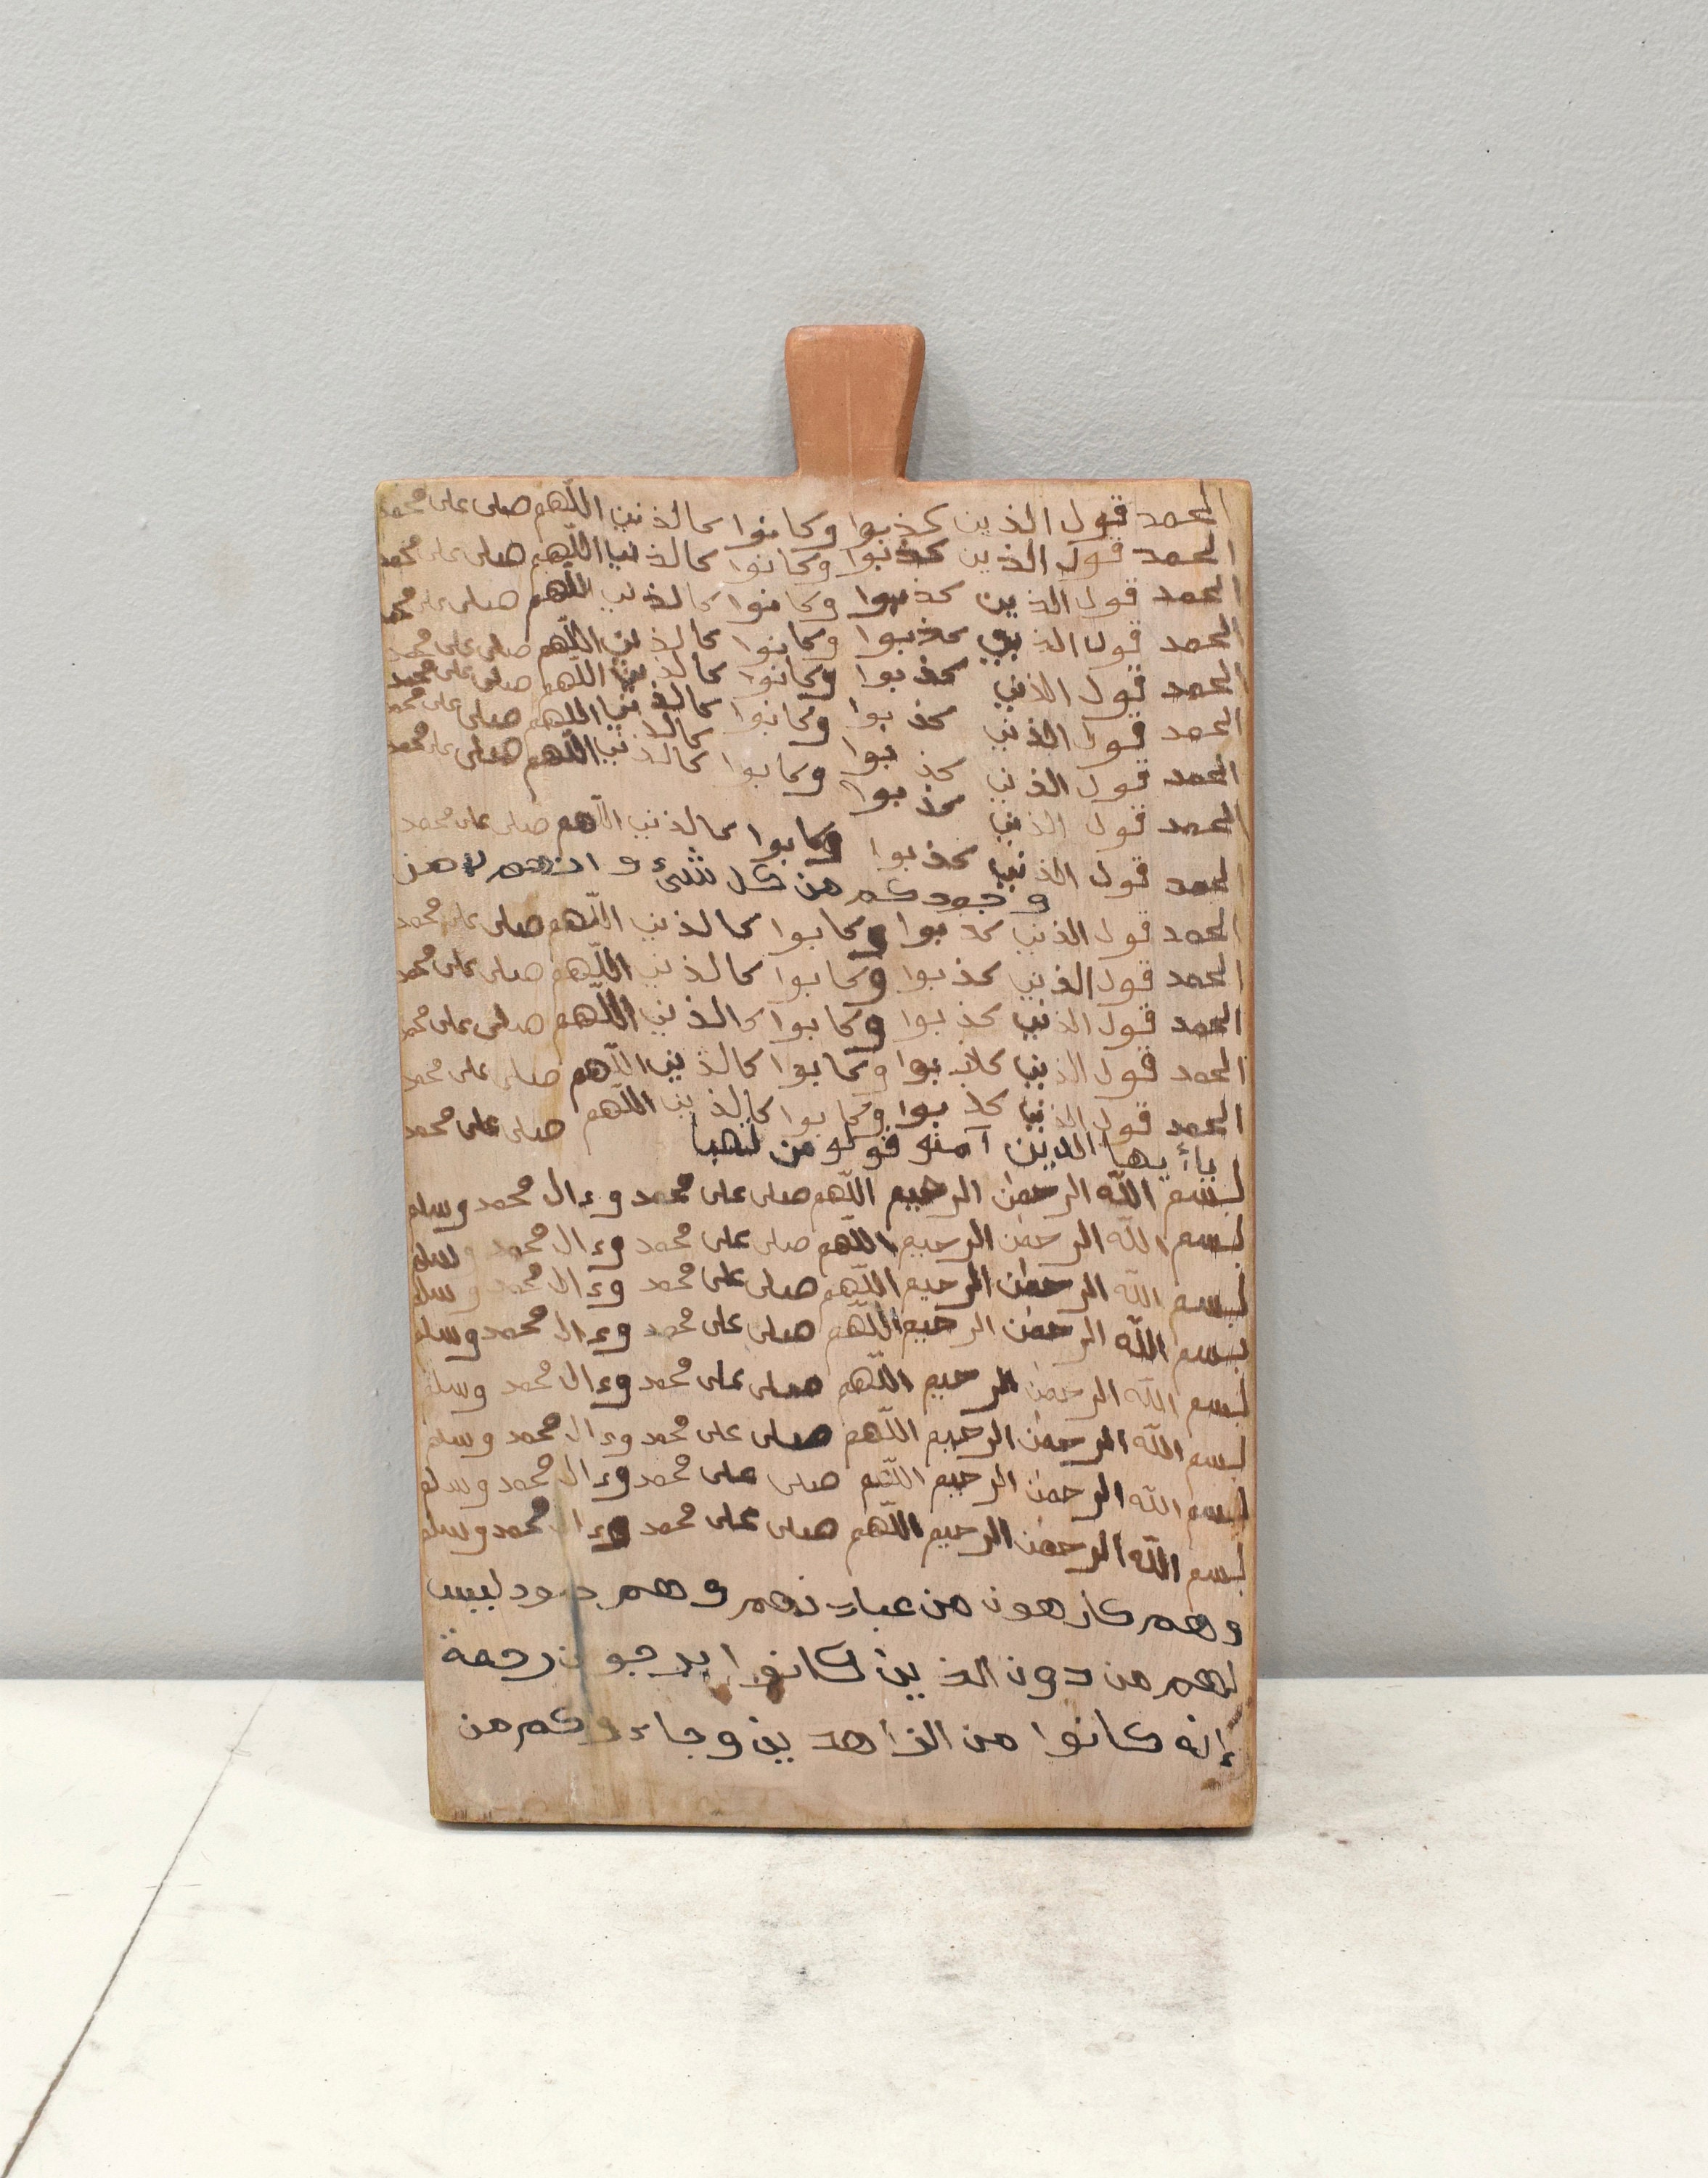 الحمد قول الذين كذبوا وكانوا كالذين اللّهم صلى على محمد
الحمد قول الذين كذبوا وكانوا كالذين اللّهم صلى على محمد
الحمد قول الذين كذبوا وكانوا كالذين اللّهم صلى على محمد
الحمد قول الذين كذبوا وكانوا كالذين اللّهم صلى على محمد
الحمد قول الذين كذبوا وكانوا كالذين اللّهم صلى على محمد
الحمد قول الذين كذبوا وكانوا كالذين اللّهم صلى على محمد
الحمد قول الذين كذبوا وكانوا كالذين اللّهم صلى على محمد
الحمد قول الذين كذبوا وكانوا كالذين اللّهم صلى على محمد
الحمد قول الذين كذبوا
وجودكم من كل شئ و
الحمد قول الذين كذبوا وكانوا كالذين اللّهم صلى على محمد
الحمد قول الذين كذبوا وكانوا كالذين اللّهم صلى على محمد
الحمد قول الذين كذبوا وكانوا كالذين اللّهم صلى على محمد
الحمد قول الذين كذبوا وكانوا كالذين اللّهم صلى على محمد
الحمد قول الذين كذبوا وكانوا كالذين اللّهم صلى على محمد
يأيها الذين آمنو من
بسم اللّه الرحمن الرحيم اللّهم صلى على محمد وءال محمد وسلم
بسم اللّه الرحمن الرحيم اللّهم صلى على محمد وءال محمد وسلم
بسم اللّه الرحمن الرحيم اللّهم صلى على محمد وءال محمد وسلم
بسم اللّه الرحمن الرحيم اللّهم صلى على محمد وءال محمد وسلم
بسم اللّه الرحمن الرحيم اللّهم صلى على محمد وءال محمد وسلم
بسم اللّه الرحمن الرحيم اللّهم صلى على محمد وءال محمد وسلم
بسم اللّه الرحمن الرحيم اللّهم صلى على محمد وءال محمد وسلم
بسم اللّه الرحمن الرحيم اللّهم صلى على محمد وءال محمد وسلم
وهم كارهون من وهم ليس
لهم من دون الذين كانوا يرجون رحمة
إنه كانوا من الزاهدين وجاءوكم من